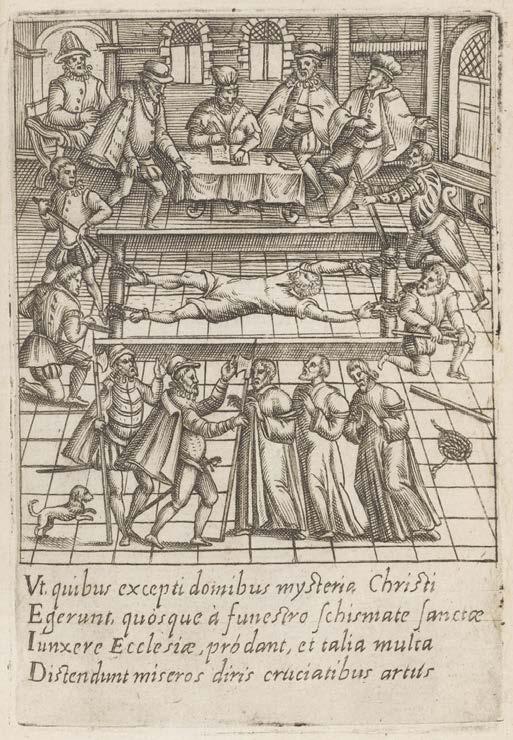 Vt quibus excepti domibus mysteria Christi
Egerunt, quósque à funestro ſchismate ſanctæ
Iunxere Ecclesiæ, pródant, et talia multa
Diſtendunt miseros diris cruciatibus artus